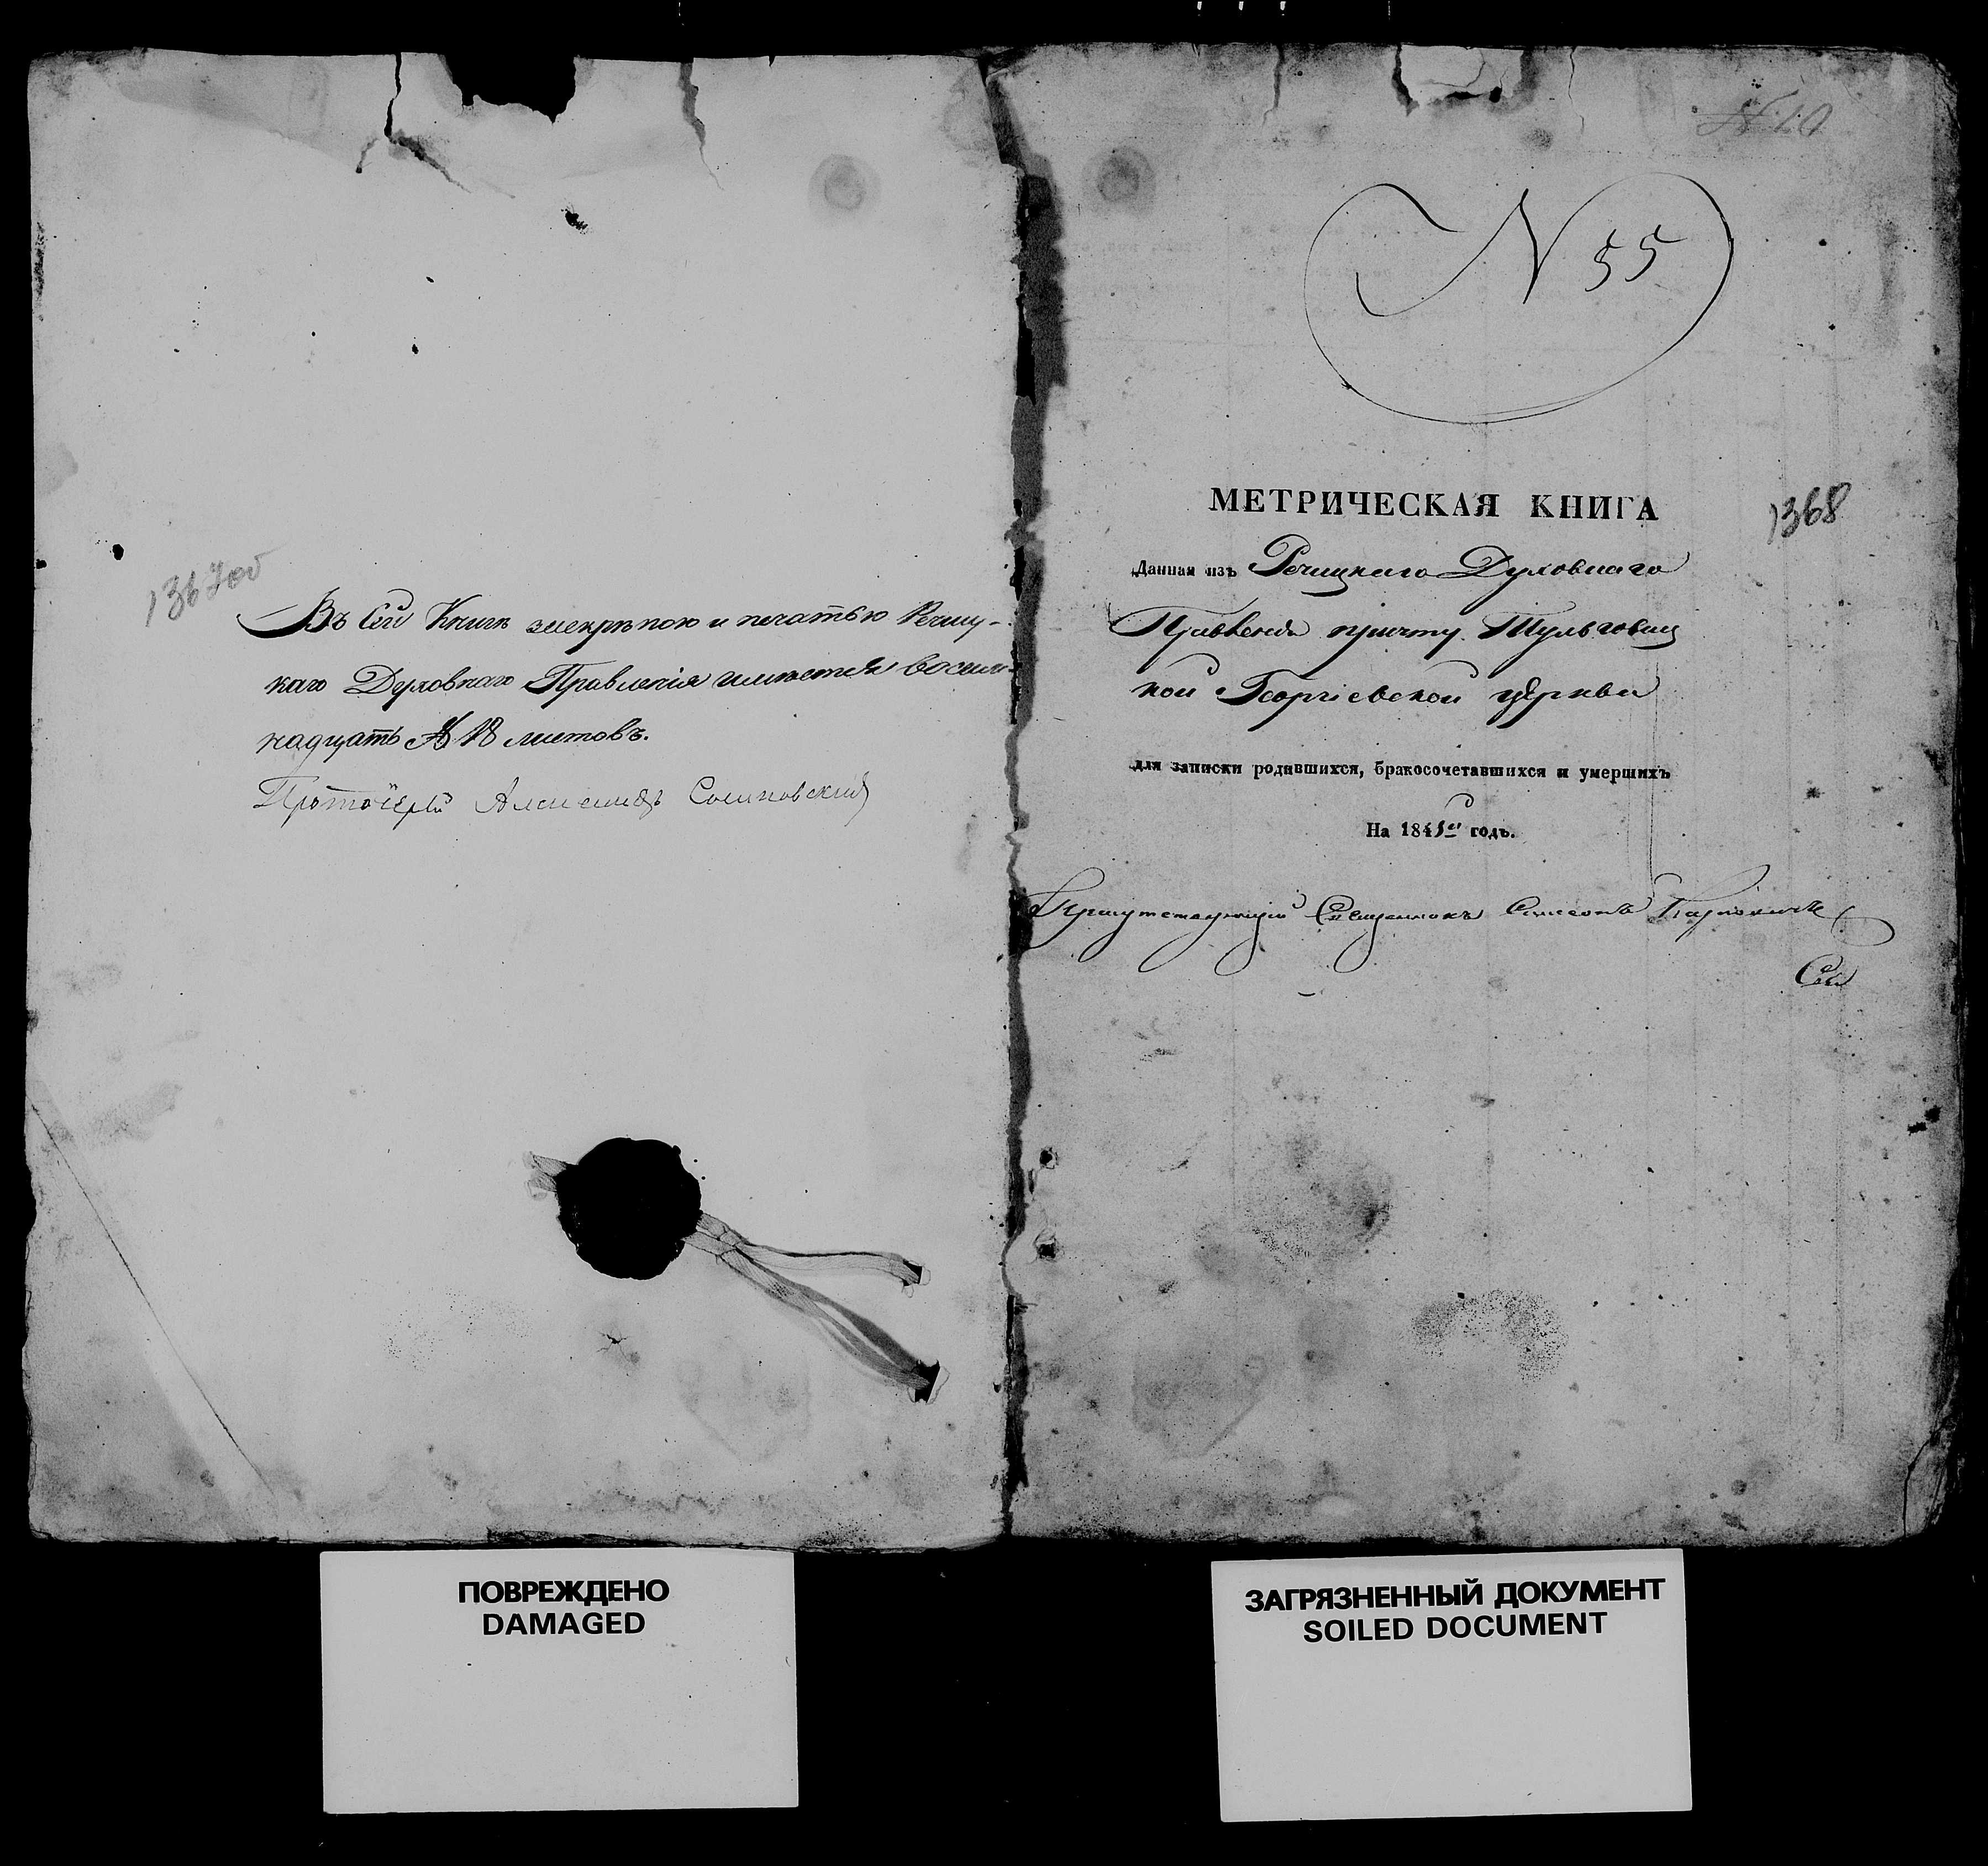 1367об
Въ сей Книгѣ за скрѣпою и печатью Речиц-
каго Духовнаго Правленія имѣется восем-
надцать 18 листовъ.
Протоіерей
N 10
N 55
МЕТРИЧЕСКАЯ КНИГА
1368
Данная изъ Речицкаго Духовнаго
Правленія причту Тульговиц
кой Георгіевской церкви
для записки родившихся, бракосочетавшихся и умершихъ
На 1845й годъ.
Присутствующій Священникъ Симеонъ Карповичъ
Сей
ПОВРЕЖДЕНО
DAMAGED
ЗАГРЯЗНЕННЫЙ ДОКУМЕНТ
SOILED DOCUMENT